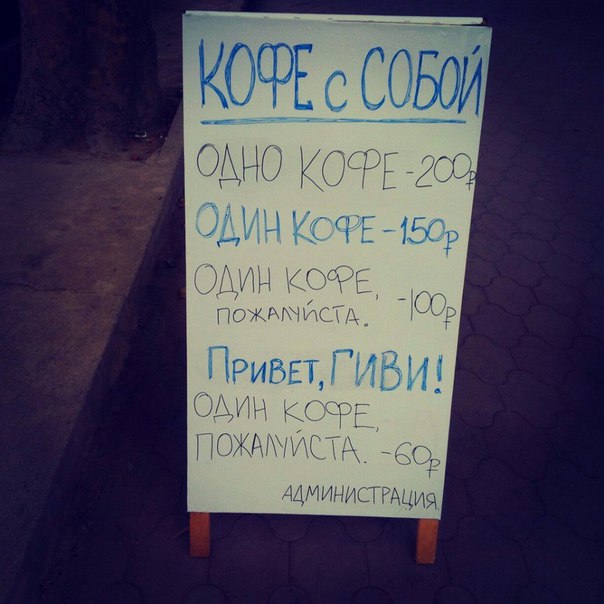 КОФЕ с СОБОЙ
ОДНО КОФЕ - 200₽
ОДИН КОФЕ - 150₽
ОДИН КОФЕ,
ПОЖАЛУЙСТА. - 100₽
ПРИВЕТ, ГИВИ!
ОДИН КОФЕ,
ПОЖАЛУЙСТА. - 60₽
АДМИНИСТРАЦИЯ